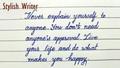 Stylish Writing
Never explain yourself to
anyone. You don't need
anyone's approval. Live
your life and do what
makes you happy.